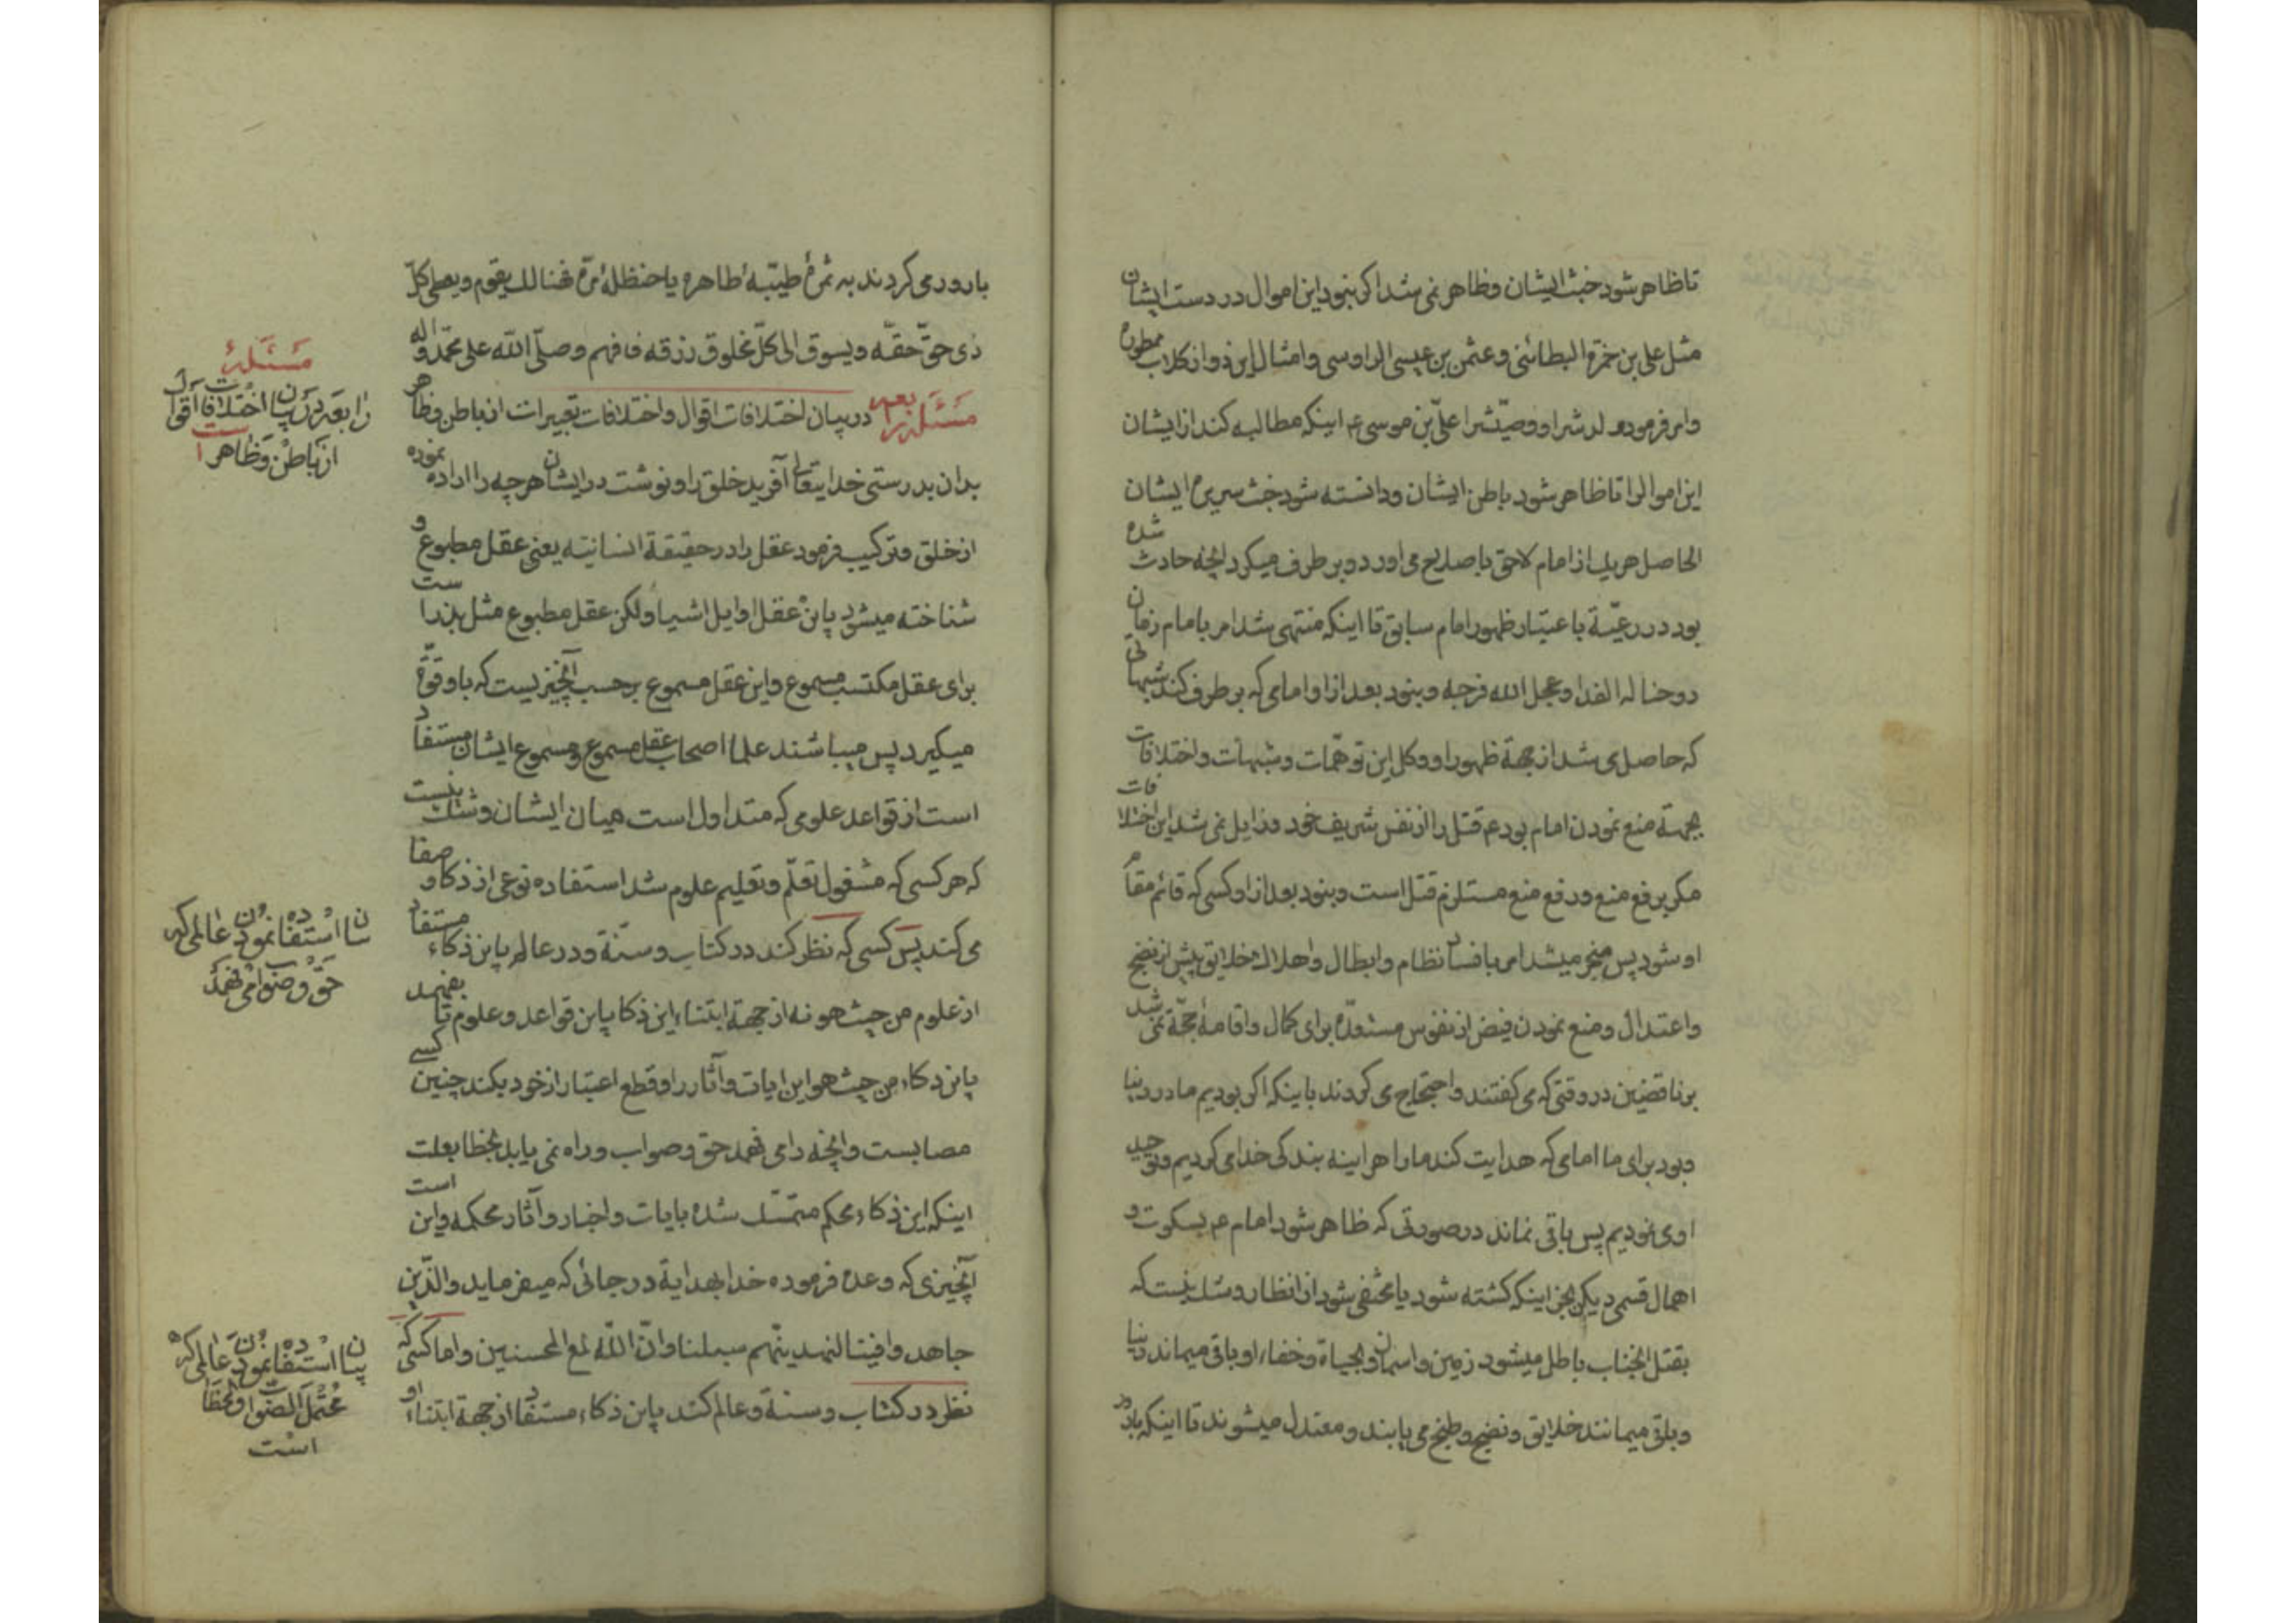 تا ظاهر شود خبث ایشان و ظاهر نمی شد اکر نبود این اموال در دست ایشان
مثل علی بن حمزة البطائنی و عثمن بن عیسی الراوسی و امثال این دو از کلاب ممطوره
و امر فرموده ولدش را و وصیّش را علیّ بن موسی ع اینکه مطالبه کند از ایشان
این اموال را تا ظاهر شود باطن ایشان و دانسته شود خبث سریره ایشان
الحاصل هریک از امام لاحق باصلاح می اورد و برطرف میکرد انچه حادث شده
بود در رعیّة باعتبار ظهور امام سابق تا اینکه منتهی شد امر بامام زمان
روحنا له الفدا و عجل الله فرجه و نبود بعد از او امامی که برطرف کند شبهاتی
که حاصل می شد از جهة ظهور او و کل این توهّمات و شبهات و اختلافات
بجهة منع نمودن امام بود ع قتل را از نفس شریف خود و زایل نمی شد این اختلافات
مکر برفع منع و رفع منع مستلزم قتل است و نبود بعد از او کسی که قائم مقام
او شود پس منجر میشد امر بافساد نظام و ابطال و اهلاک خلایق پیش از نضج
و اعتدال و منع نمودن فیض از نفوس مستعدّه برای کمال و اقامهٔ حجّة نمی شد
بر ناقضین در وقتی که می کفتند و احتجاج می کردند باینکه اکر بودیم ما در دنیا
و بود برای ما امامی که هدایت کند ما را هر اینه بندکی خدا می کردیم و توحید
او می نمودیم پس باقی نماند در صورتی که ظاهر شود امام ع بسکوت و
اهمال قسمی دیکر بجز اینکه کشته شود یا مختفی شود از انظار و شک نیست که
بقتل انجناب باطل میشود زمین و اسمان و بحیاة و خفاء او باقی میماند دنیا
و باقی میمانند خلایق و نضج و طبخ می یابند و معتدل میشوند تا اینکه بارور
بارور می کردند به ثمرهٔ طیّبهٔ طاهره یا حنظلهٔ مرّه فهنالک یقوم و یعطی کلّ
ذی حقّ حقّه و یسوق الی کلّ مخلوق رزقه فافهم و صلّی الله علی محمّد و اله
مَسْئَلَة رابعه در بیان اختلافات اقوال و اختلافات تعبیرات از باطن و ظاهر
بدان بدرستی خدایتعالی آفرید خلق را و نوشت در ایشان هرچه را اراده نموده
از خلق و ترکیب فرمود عقل را در حقیقة انسانیّه یعنی عقل مطبوع و
شناخته میشود باین عقل اوایل اشیا و لکن عقل مطبوع مثل بذر است
برای عقل مکتسب مسموع و این عقل مسموع برحسب آنچیزیست که باو قوّة
میکیرد پس میباشند علما اصحاب عقل مسموع و مسموع ایشان مستفاد
است از قواعد علومی که متداول است میان ایشان و شک نیست
که هر کسی که مشغول تعلّم و تعلیم علوم شد استفاده نوعی از ذکا و صفا
می کند پس کسی که نظر کند در کتاب و سنّة و در عالم باین ذکاء مستفاد
از علوم من حیث هو نه از جهة ابتناء این ذکا باین قواعد و علوم تا بفهمد
باین ذکاء من حیث هو این ایات و آثار را و قطع اعتبار از خود بکند چنین کسی
مصابست و انچه را می فهمد حق و صواب و راه نمی یابد بخطا بعلت
اینکه این ذکاء محکم متمسّک شده بایات و اخبار و آثار محکمه و این است
آنچیزی که وعده فرموده خدا بهدایة در جائی که میفرماید والّذین
جاهدوا فینا لنهدینّهم سبلنا و انّ اللّٰه لمع المحسنین و اما کسی که
نظر در کتاب و سنة و عالم کند باین ذکاء مستفاد از جهة ابتناء او
مَسْئَلَهٔ
رابعه در بیان اختلافات اقوال
از باطن و ظاهر است
بیان استفاده نمودن عالمی که
حق و صواب می فهمد
بیان استفاده نمودن عالمی که
محتمل الصواب و الخطا
است